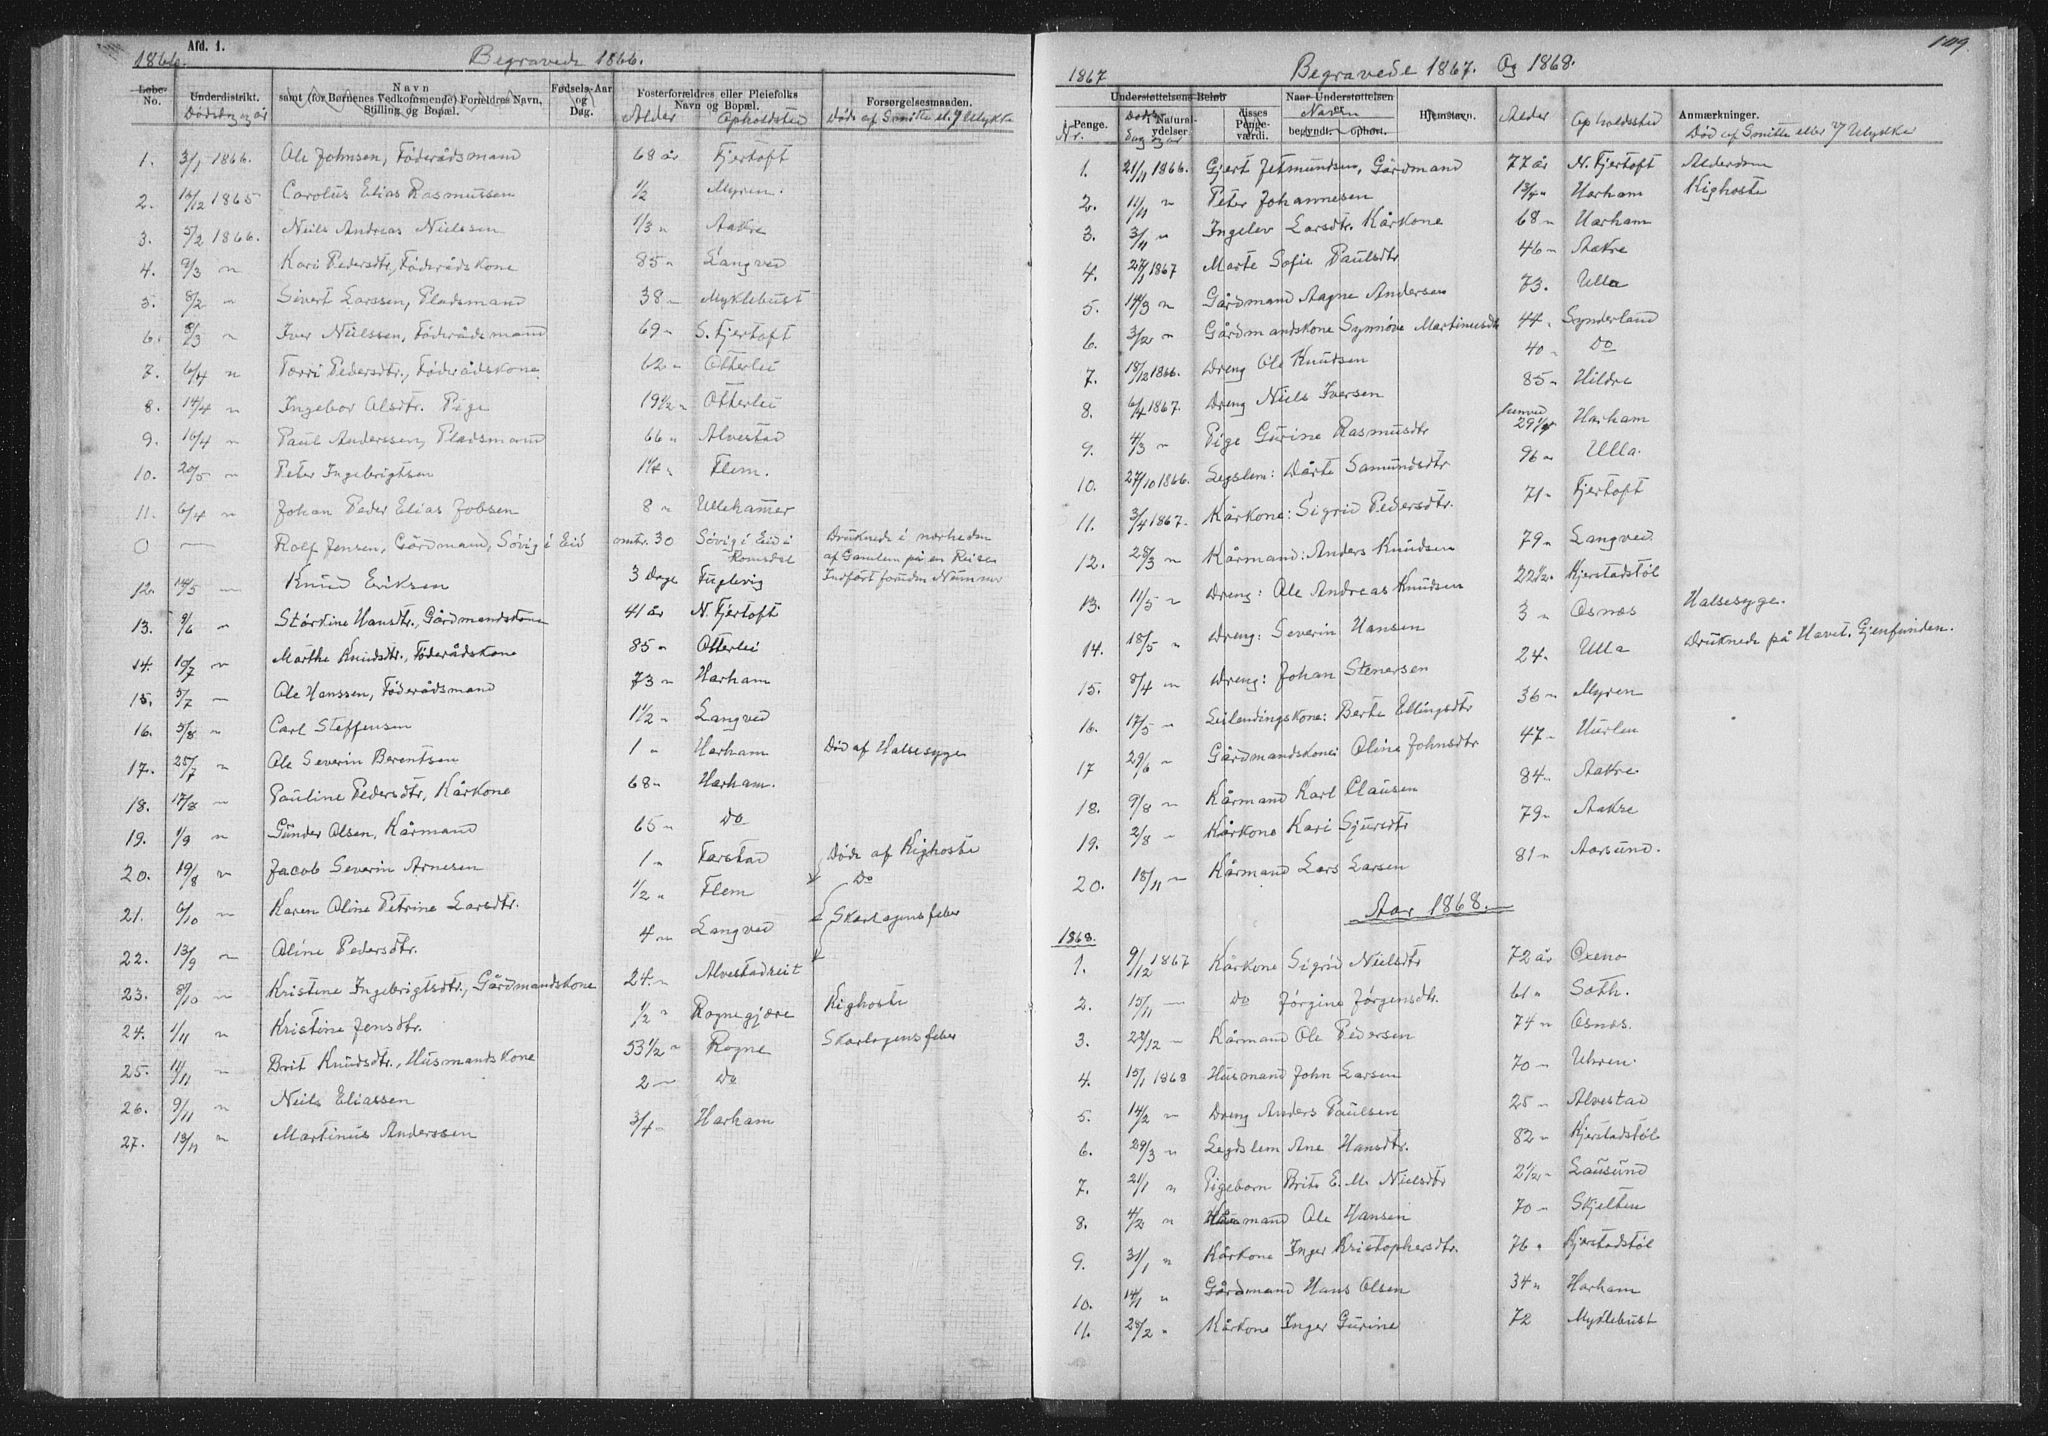 1866. Afd. 1. Begravede 1866.
Løbe-No. Underdistrikt. Navn samt (for Børnenes Vedkommende) Forældres Navn, Stilling og Bopæl. Fødsels-Aar og Dag. Fosterforældres eller Pleiefolks Navn og Bopæl. Forsørgelsesmaaden.
Dødsdag og år Alder Opholdsted Død af Smitte el. Ulykke
1. 3/1 1866. Ole Johnsen, Føderådsmand 68 år Fjertoft
2. 12/12 1865 Carolus Elias Rasmussen 1/2 Myren.
3. 5/2 1866. Neils Andreas Nielssen 1/3 " Aakre
4. 9/3 " Kari Pedersdtr, Føderådskone 85 " Langved
5. 8/2 " Sivert Larssen, Pladsmand 38 " Myklebust
6. 8/3 " Iver Nielssen, Føderådsmand 69 " S. Fjertoft
7. 6/4 " Torri Pedersdtr., Føderådskone 62 " Otterlei
8. 14/4 " Ingebor Olsdtr. Pige 19 1/2 " Otterlei
9. 16/4 " Paul Anderssen, Pladsmand 66 " Alvestad
10. 20/5 " Peter Ingebrigtsen 1 1/4 " Flem.
11. 6/4 " Johan Peder Elias Jobsen 8 " Ullehamer
0 — Rolf Jensen, Gårdmand, Søvig i Eid omtr. 30 Søvig i Eid i Romsdal Druknede i nærheden af Gamlem på en Reise
12. 14/5 — Knud Eriksen 3 Dage Fuglevig Indført foruden Nummer
13. 9/6 " Størkine Hansdtr., Gårdmandskone 41 år N. Fjertoft
14. 10/7 " Marthe Knudsdtr., Føderådskone 85 " Otterlei
15. 5/7 — Ole Hanssen, Føderådsmand 73 " Harham
16. 5/8 " Carl Steffensen 1 1/2 " Langved
17. 25/7 " Ole Severin Berentsen 1 " Harham Død af Halsesyge
18. 17/8 " Pauline Pedersdtr, Kårkone 68 " Harham.
19. 1/9 " Gunder Olsen, Kårmand 65 " Do
20. 19/8 " Jacob Severin Arnesen 1 " Farstad Døde af Kighoste
21. 6/10 " Karen Oline Petrine Larsdtr. 1/2 " Flem Do
22. 13/9 " Oline Pedersdtr. 4 " Langved Skarlagensfeber
23. 8/10 " Kristine Ingebrigtsdtr., Gårdmandskone 24 " Alvestadreit
24. 1/11 " Kristine Jensdtr. 1/2 " Rognegjære Kighoste
25. 11/11 " Brit Knudsdtr., Husmandskone 53 1/2 " Rogne Skarlagensfeber
26. 9/11 " Neils Eliassen 2 " Do
27. 13/11 " Martinus Anderssen 3/4 " Harham
149.
1867 Begravede 1867. Og 1868.
Understøttelsens Beløb Naar Understøttelsen Hjemstavn. Anmærkninger.
i Penge. i Naturalydelser disses Pengeværdi. begyndt. ophørt.
Nr. Døds Dag og år Navn Alder Opholdssted Død af Smitte eller Ulykke
1. 21/11 1866. Gjert Jetmundsen, Gårdmand 77 år N. Fjertoft Alderdom
2. 1/11 " Peter Johannesen 1 3/4 " Harham Kighoste
3. 3/11 " Ingelev Larsdtr. Kårkone 68 " Harham
4. 27/1 1867 Marte Sofie Paulsdtr 46 " Aakre
5. 14/3 " Gårdmand Aagne Andersen 73. Ulla
6. 3/2 " Gårdmandskone Synnøve Martinusdtr 44 " Synderland
7. 18/12 1866. Dreng Ole Knudsen 40 " Do
8. 6/4 1867. Dreng Niels Iversen 85 " Hildre
9. 4/3 " Pige Gurine Rasmusdtr 29 1/4 Harham
10. 27/10 1866. Legslem: Dårte Samundsdtr 96 " Ulla.
11. 3/4 1867. Kårkone: Sigrid Pedersdtr. 71 " Fjertoft
12. 28/3 " Kårmand: Anders Knudsen 79 " Langved
13. 11/5 " Dreng: Ole Andreas Knudsen 22 1/2 " Kjerstadstøl
14. 18/5 " Dreng: Severin Hansen 3 " Osnæs Halsesyge.
15. 8/4 " Dreng: Johan Stenersen 24 " Ulla Druknede på Havet. Gjenfunden.
16. 17/5 " Leilendingskone: Berte Ellingsdtr 36 " Myren
17 29/6 " Gårdmandskone: Oline Johnsdtr 47 " Hurlen
18. 9/8 " Kårmand Karl Clausen 84 " Aakre
19. 2/8 " Kårkone Kari Sjursdtr 79 " Aakre
20. 18/11 " Kårmand Lars Larsen 81 " Aarsund.
Aar 1868.
1868.
1. 9/12 1867 Kårkone Sigrid Nielsdtr 72 år Oxenø
2. 15/11 — Do Jørgine Jørgensdtr. 61 " Søth.
3. 22/12 " Kårmand Ole Pedersen 74 " Osnæs.
4. 15/1 1868 Husmand John Larsen 70 " Uhren.
5. 14/2 " Dreng Anders Paulsen 25 " Alvestad
6. 29/3 " Legdslem Ane Hansdtr. 82 " Kjerstadstøl
7. 21/1 " Pigebarn Brite E. M. Nielsdtr 2 1/2 " Lausund
8. 4/2 " Husmand Ole Hansen 70 " Skjelten
9. 31/1 " Kårkone Inger Kristophersdtr. 76 " Kjerstadstøl
10. 14/1 " Gårdmand Hans Olsen 34 " Harham
11. 28/2 " Kårkone Inger Gurine 72 Myklebust